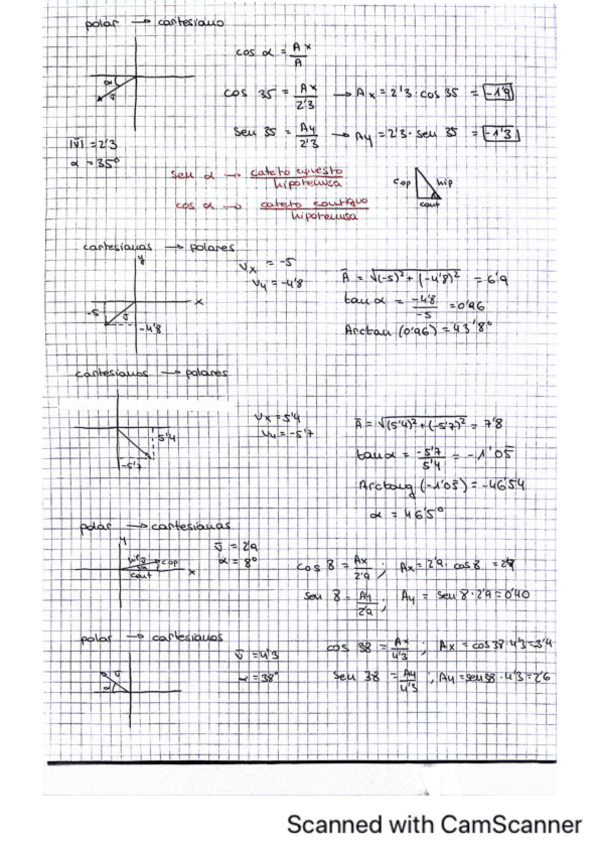 polar → cartesiano
cos α = Ax/A
α
v
cos 35 = Ax/2'3 → Ax = 2'3 · cos 35 = -1'9
sen 35 = Ay/2'3 → Ay = 2'3 · sen 35 = -1'3
|v̄| = 2'3
α = 35º
sen α → cateto opuesto/hipotenusa
cop hip
cont
cos α → cateto contiguo/hipotenusa
cartesianas → polares
y
x
-5
v
-4'8
Vx = -5
Vy = -4'8
Ā = √(-5)² + (-4'8)² = 6'9
tan α = -4'8/-5 = 0'96
Arctan (0'96) = 43'8º
cartesianas → polares
5'4
-5'7
Vx = 5'4
Vy = -5'7
Ā = √(5'4)² + (-5'7)² = 7'8
tan α = -5'7/5'4 = -1'05
Arctang (-1'05) = -46'54
α = 46'5º
polar → cartesianas
y
hip v cop
cont
x
v̄ = 2'9
α = 8º
cos 8 = Ax/2'9 ; Ax = 2'9 · cos 8 =
sen 8 = Ay/2'9 ; Ay = sen 8 · 2'9 = 0'40
polar → cartesianas
v
α
v̄ = 4'3
α = 38º
cos 38 = Ax/4'3 ; Ax = cos 38 · 4'3 = 3'4
sen 38 = Ay/4'3 ; Ay = sen 38 · 4'3 = 2'6
Scanned with CamScanner